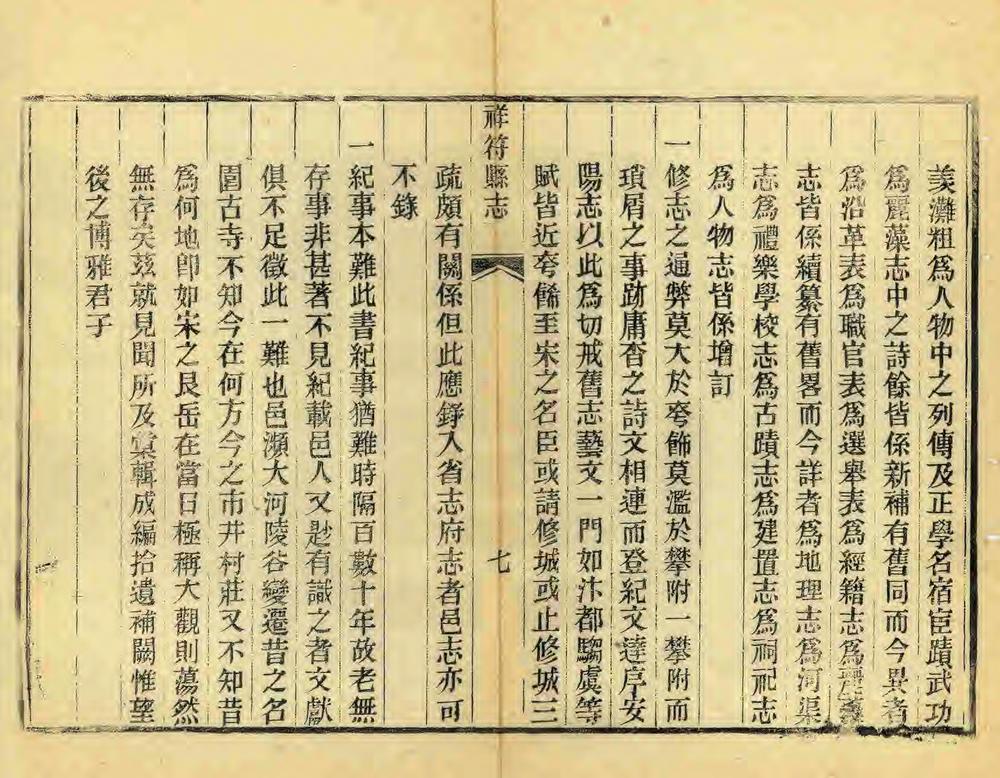 羙灘粗爲人物中之列傳及正學名宿宦蹟武功
爲麗藻志中之詩餘皆係新補有舊同而今異者
爲沿革表爲職官表爲選舉表爲經籍志爲麗藻
志皆係續纂有舊畧而今詳者爲地理志爲河渠
志爲禮樂學校志爲古蹟志爲建置志爲祠祀志
爲人物志皆係增訂
一修志之通弊莫大於夸飾莫濫於攀附一攀附而
瑣屑之事跡庸杳之詩文相連而登紀文達序安
陽志以此爲切戒舊志藝文一門如汴都騶虞等
賦皆近夸餙至宋之名臣或請修城或止修城三
祥符縣志
七
疏頗有關係但此應錄入省志府志者邑志亦可
不錄
一紀事本難此書紀事猶難時隔百數十年故老無
存事非甚著不見紀載邑人又尟有識之者文獻
俱不足徵此一難也邑瀕大河陵谷變遷昔之名
園古寺不知今在何方今之市井村莊又不知昔
爲何地卽如宋之艮岳在當日極稱大觀則蕩然
無存矣茲就見聞所及彚輯成編拾遺補闕惟望
後之博雅君子